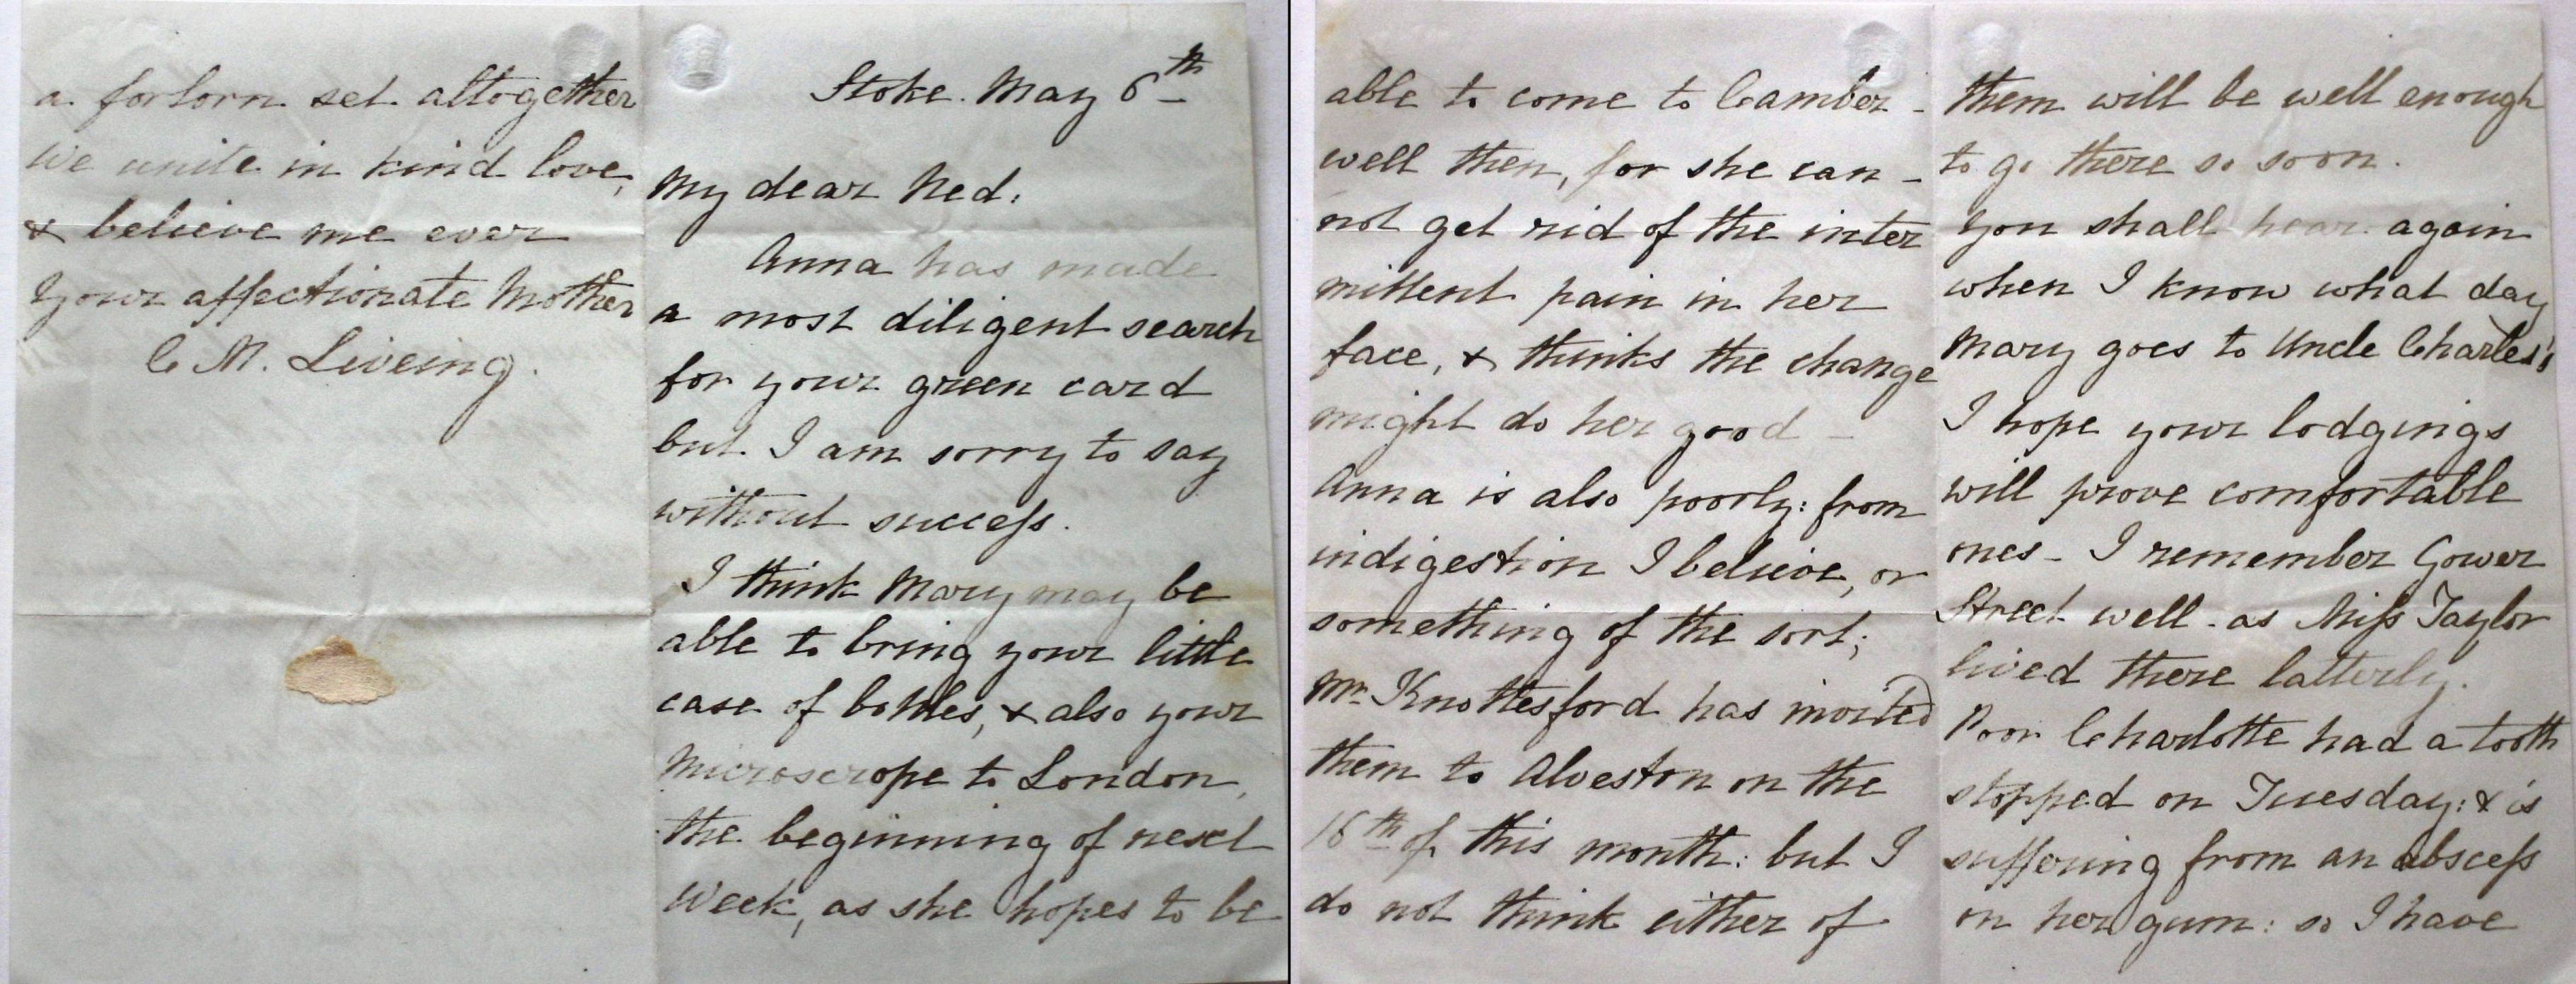 Stoke. May 6th
My dear Ned.
Anna has made
a most diligent search
for your green card
but I am sorry to say
without success.
I think Mary may be
able to bring your little
case of bottles, & also your
Microscope to London,
the beginning of next
week, as she hopes to be
able to come to Camber-
well then, for she can-
not get rid of the inter
mittent pain in her
face, & thinks the change
might do her good -
Anna is also poorly: from
indigestion I believe, or
something of the sort;
Mr Knottesford has invited
them to Alveston on the
16th of this month: but I
do not think either of
them will be well enough
to go there so soon.
You shall hear again
when I know what day
Mary goes to Uncle Charles's
I hope your lodgings
will prove comfortable
ones - I remember Gower
Street well - as Miss Taylor
lived there latterly.
Poor Charlotte had a tooth
stopped on Tuesday: & is
suffering from an abscess
on her gum: so I have
a forlorn set altogether
We unite in kind love,
& believe me ever
Your affectionate Mother
C M. Liveing.